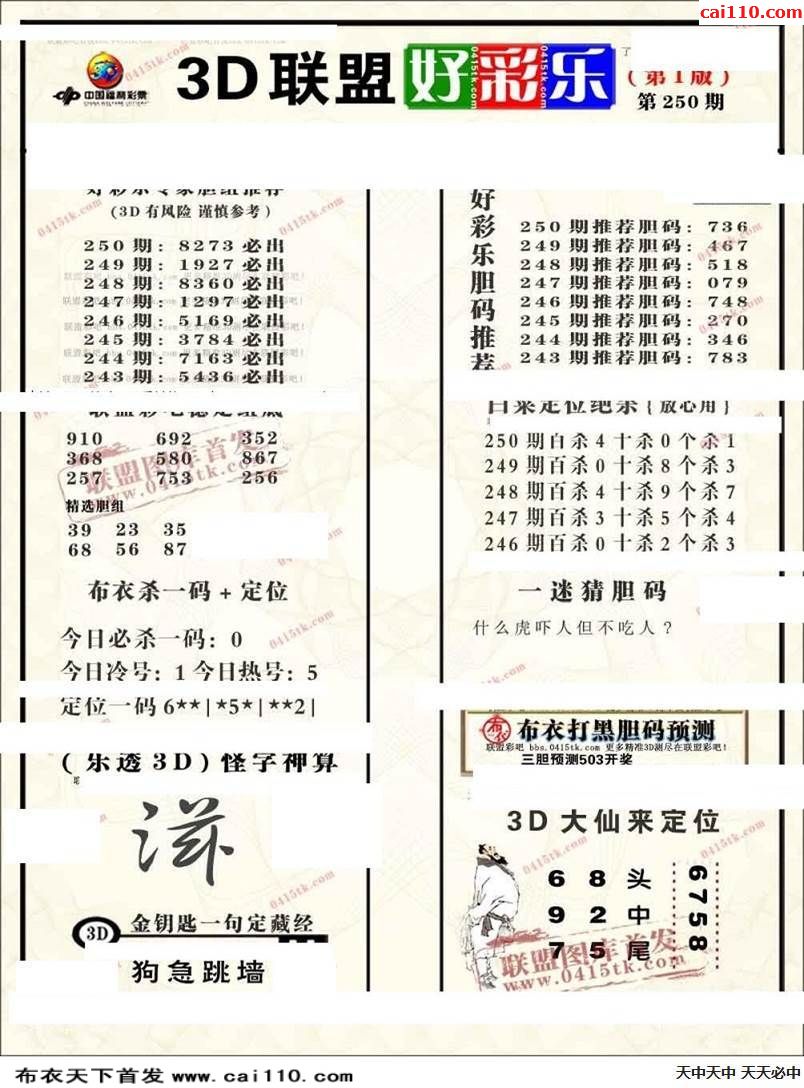 cai110.com
中国福利彩票
CHINA WELFARE LOTTERY
3D联盟好彩乐
(第1版)
第250期
好彩乐专家胆组推荐
(3D有风险 谨慎参考)
250期:8273必出
249期:1927必出
248期:8360必出
247期:1297必出
246期:5169必出
245期:3784必出
244期:7163必出
243期:5436必出
910 692 352
368 580 867
257 753 256
精选胆组
39 23 35
68 56 87
联盟图库首发
www.0415tk.com
布衣杀一码+定位
今日必杀一码:0
今日冷号:1 今日热号:5
定位一码6**|*5*|**2|
(乐透3D)怪字神算
3D
金钥匙一句定藏经
狗急跳墙
好彩乐胆码推荐
250期推荐胆码:736
249期推荐胆码:467
248期推荐胆码:518
247期推荐胆码:079
246期推荐胆码:748
245期推荐胆码:270
244期推荐胆码:346
243期推荐胆码:783
白菜定位绝杀{放心用}
250期百杀4十杀0个杀1
249期百杀0十杀8个杀3
248期百杀4十杀9个杀7
247期百杀3十杀5个杀4
246期百杀0十杀2个杀3
一迷猜胆码
什么虎吓人但不吃人?
布衣
布衣打黑胆码预测
联盟彩吧 bbs.0415tk.com 更多精准3D测尽在联盟彩吧!
三胆预测503开奖
3D大仙来定位
6 8 头
9 2 中
7 5 尾
6758
联盟图库首发
www.0415tk.com
布衣天下首发 www.cai110.com
天中天中 天天必中